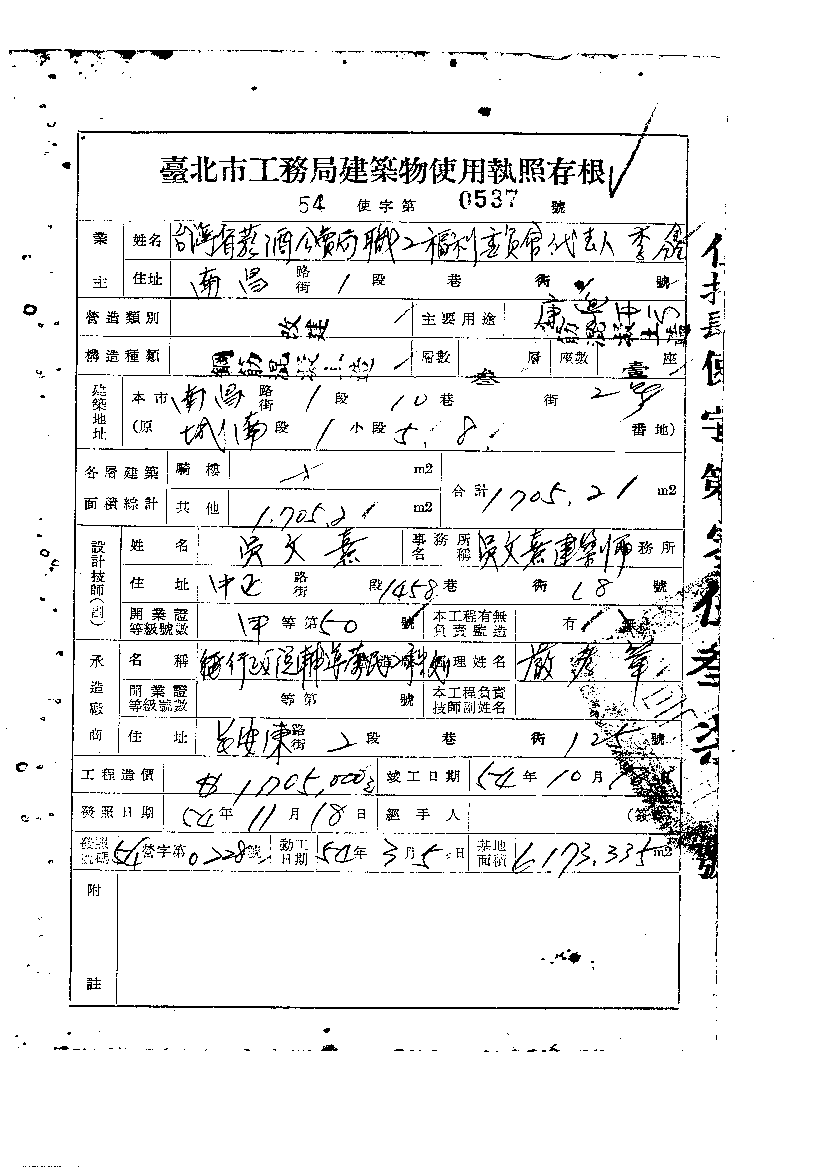 臺北市工務局建築物使用執照存根
54 使字第 0537 號
業主 姓名 台灣省菸酒公賣局職工福利委員會代表人 李
住址 南昌 路街 1 段 巷 街 號
營造類別 改建 主要用途
構造種類 鋼筋混凝土造 層數 叁 層 座數 壹 座
建築地址 本市 南昌 路街 1 段 10 巷 街 2 號
(原 城南 段 1 小段 5, 8, 番地)
各層建築面積綜計 騎樓 m2 合計 1705.21 m2
其他 1,705.21 m2
設計技師(副) 姓名 吳文熹 事務所名稱 吳文熹建築師 務所
住址 中正 路街 段 1458 巷 街 18 號
開業證等級號數 甲 等第 50 號 本工程有無負責監造 有
承造廠商 名稱 經理姓名 嚴孝章
開業證等級號數 等第 號 本工程負責技師副姓名
住址 長安東 路街 2 段 巷 街 125 號
工程造價 1,705,000 竣工日期 54 年 10 月
發照日期 54 年 11 月 18 日 經手人
發照號碼 54 營字第 0228 號 動工日期 54 年 3 月 5 日 基地面積 6173.335 m2
附註
使字第
號